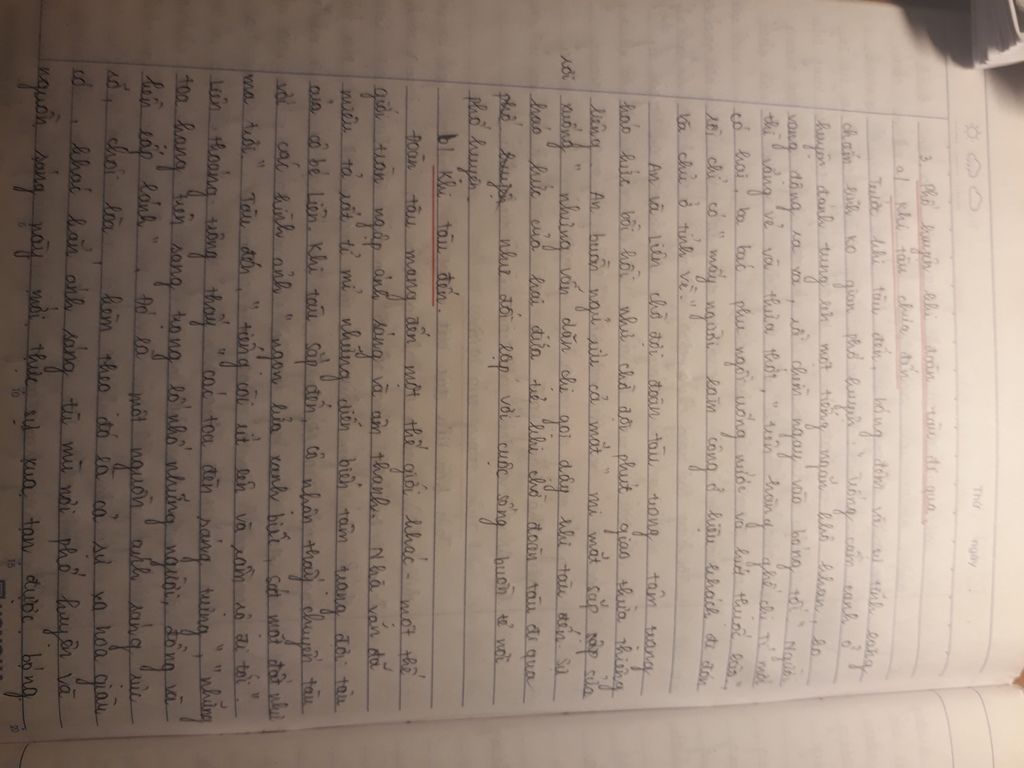 THỨ NGÀY
3. Phố huyện khi đoàn tàu đi qua
a) Khi tàu chưa đến.
Trước khi tàu đến, bóng đêm và sự tĩnh lặng
chiếm lĩnh ko gian phố huyện: "Trống cầm canh ở
huyện đánh tung lên một tiếng ngắn khô khan, ko
vang động ra xa, rồi chìm ngay vào bóng tối". Người
thì vắng vẻ và thưa thớt, "trên hàng ghế chị Tí mới
có hai, ba bác phu ngồi uống nước và hút thuốc lào",
rồi chỉ có "mấy người làm công ở hiệu khách đi đón
bà chủ ở tỉnh về."
An và Liên chờ đợi đoàn tàu trong tâm trạng
háo hức bồi hồi như chờ đợi phút giao thừa thiêng
liêng. An buồn ngủ ríu cả mắt "mi mắt sắp sập sửa
rơi
xuống" nhưng vẫn dặn chị gọi dậy khi tàu đến. Sự
háo hức của hai đứa trẻ khi chờ đoàn tàu đi qua
phố huyện như đối lập với cuộc sống buồn tẻ nơi
phố huyện.
b) Khi tàu đến.
Đoàn tàu mang đến một thế giới khác - một thế
giới tràn ngập ánh sáng và âm thanh. Nhà văn đã
miêu tả rất tỉ mỉ những diễn biến tâm trạng đợi tàu
của cô bé Liên. Khi tàu sắp đến, cô nhận thấy chuyến tàu
với các hình ảnh "ngọn lửa xanh biếc, sát mặt đất như
ma trơi". Tàu đến, "tiếng còi rít lên và rầm rộ đi tới".
Liên thoáng trông thấy "các toa đèn sáng trưng", "những
toa hạng trên sang trọng lố nhố những người, đồng và
kền lấp lánh", đó là một nguồn ánh sáng rực
rỡ, chói lòa, kèm theo đó là cả sự xa hoa giàu
có, khác hẳn ánh sáng tù mù nơi phố huyện và
nguồn sáng này mới thực sự xua tan được bóng